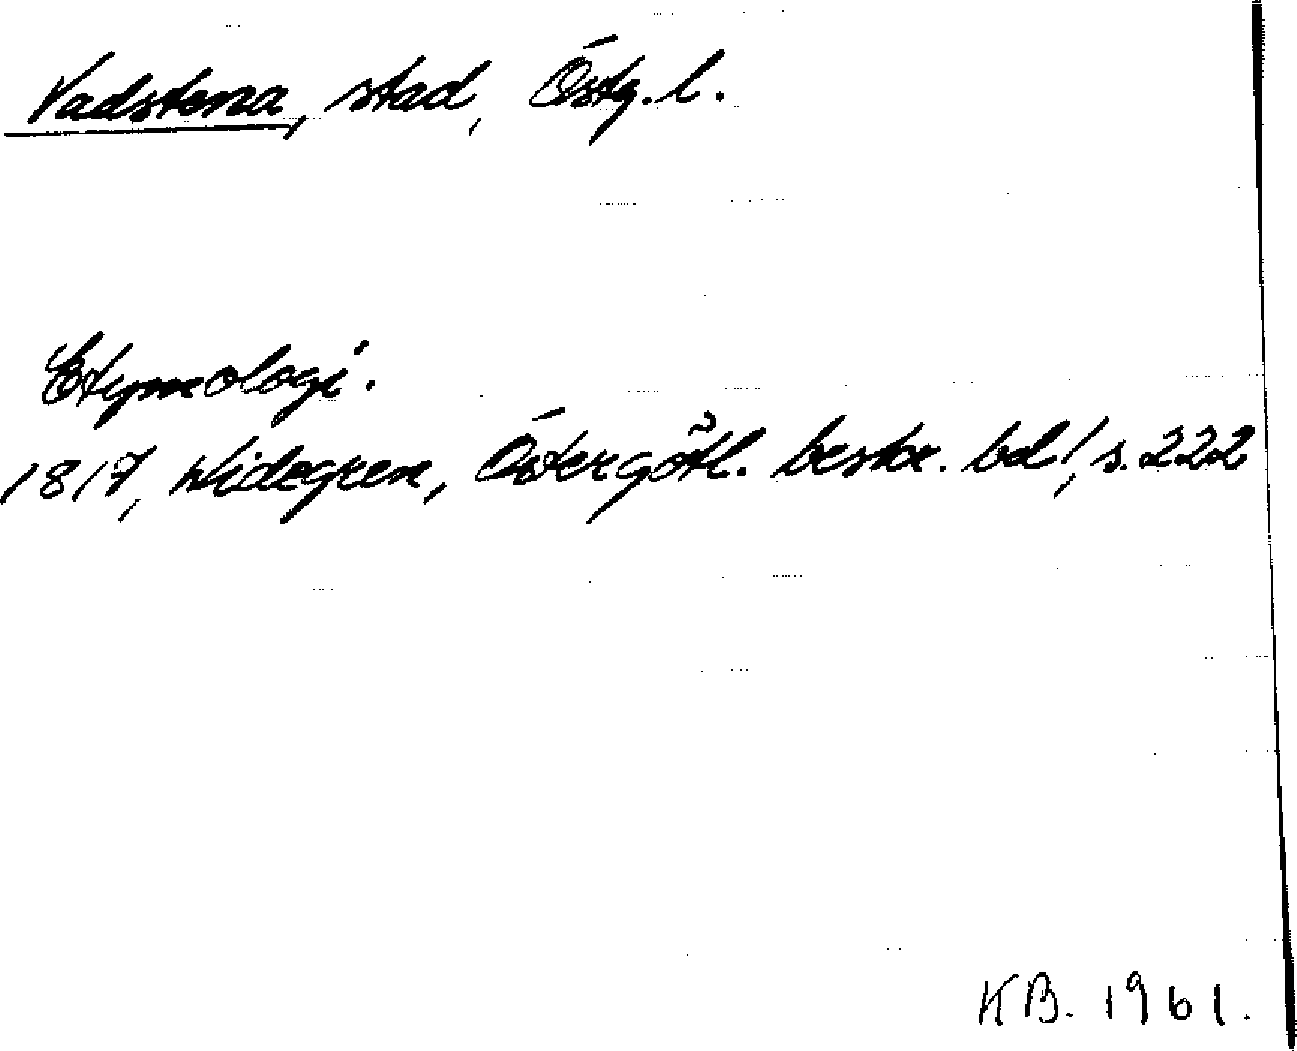 Vadstena, stad, Östg. l.
Etymologi.
1817, Widegren, Östergötl. beskr. bd 1, s. 222
KB. 1961.